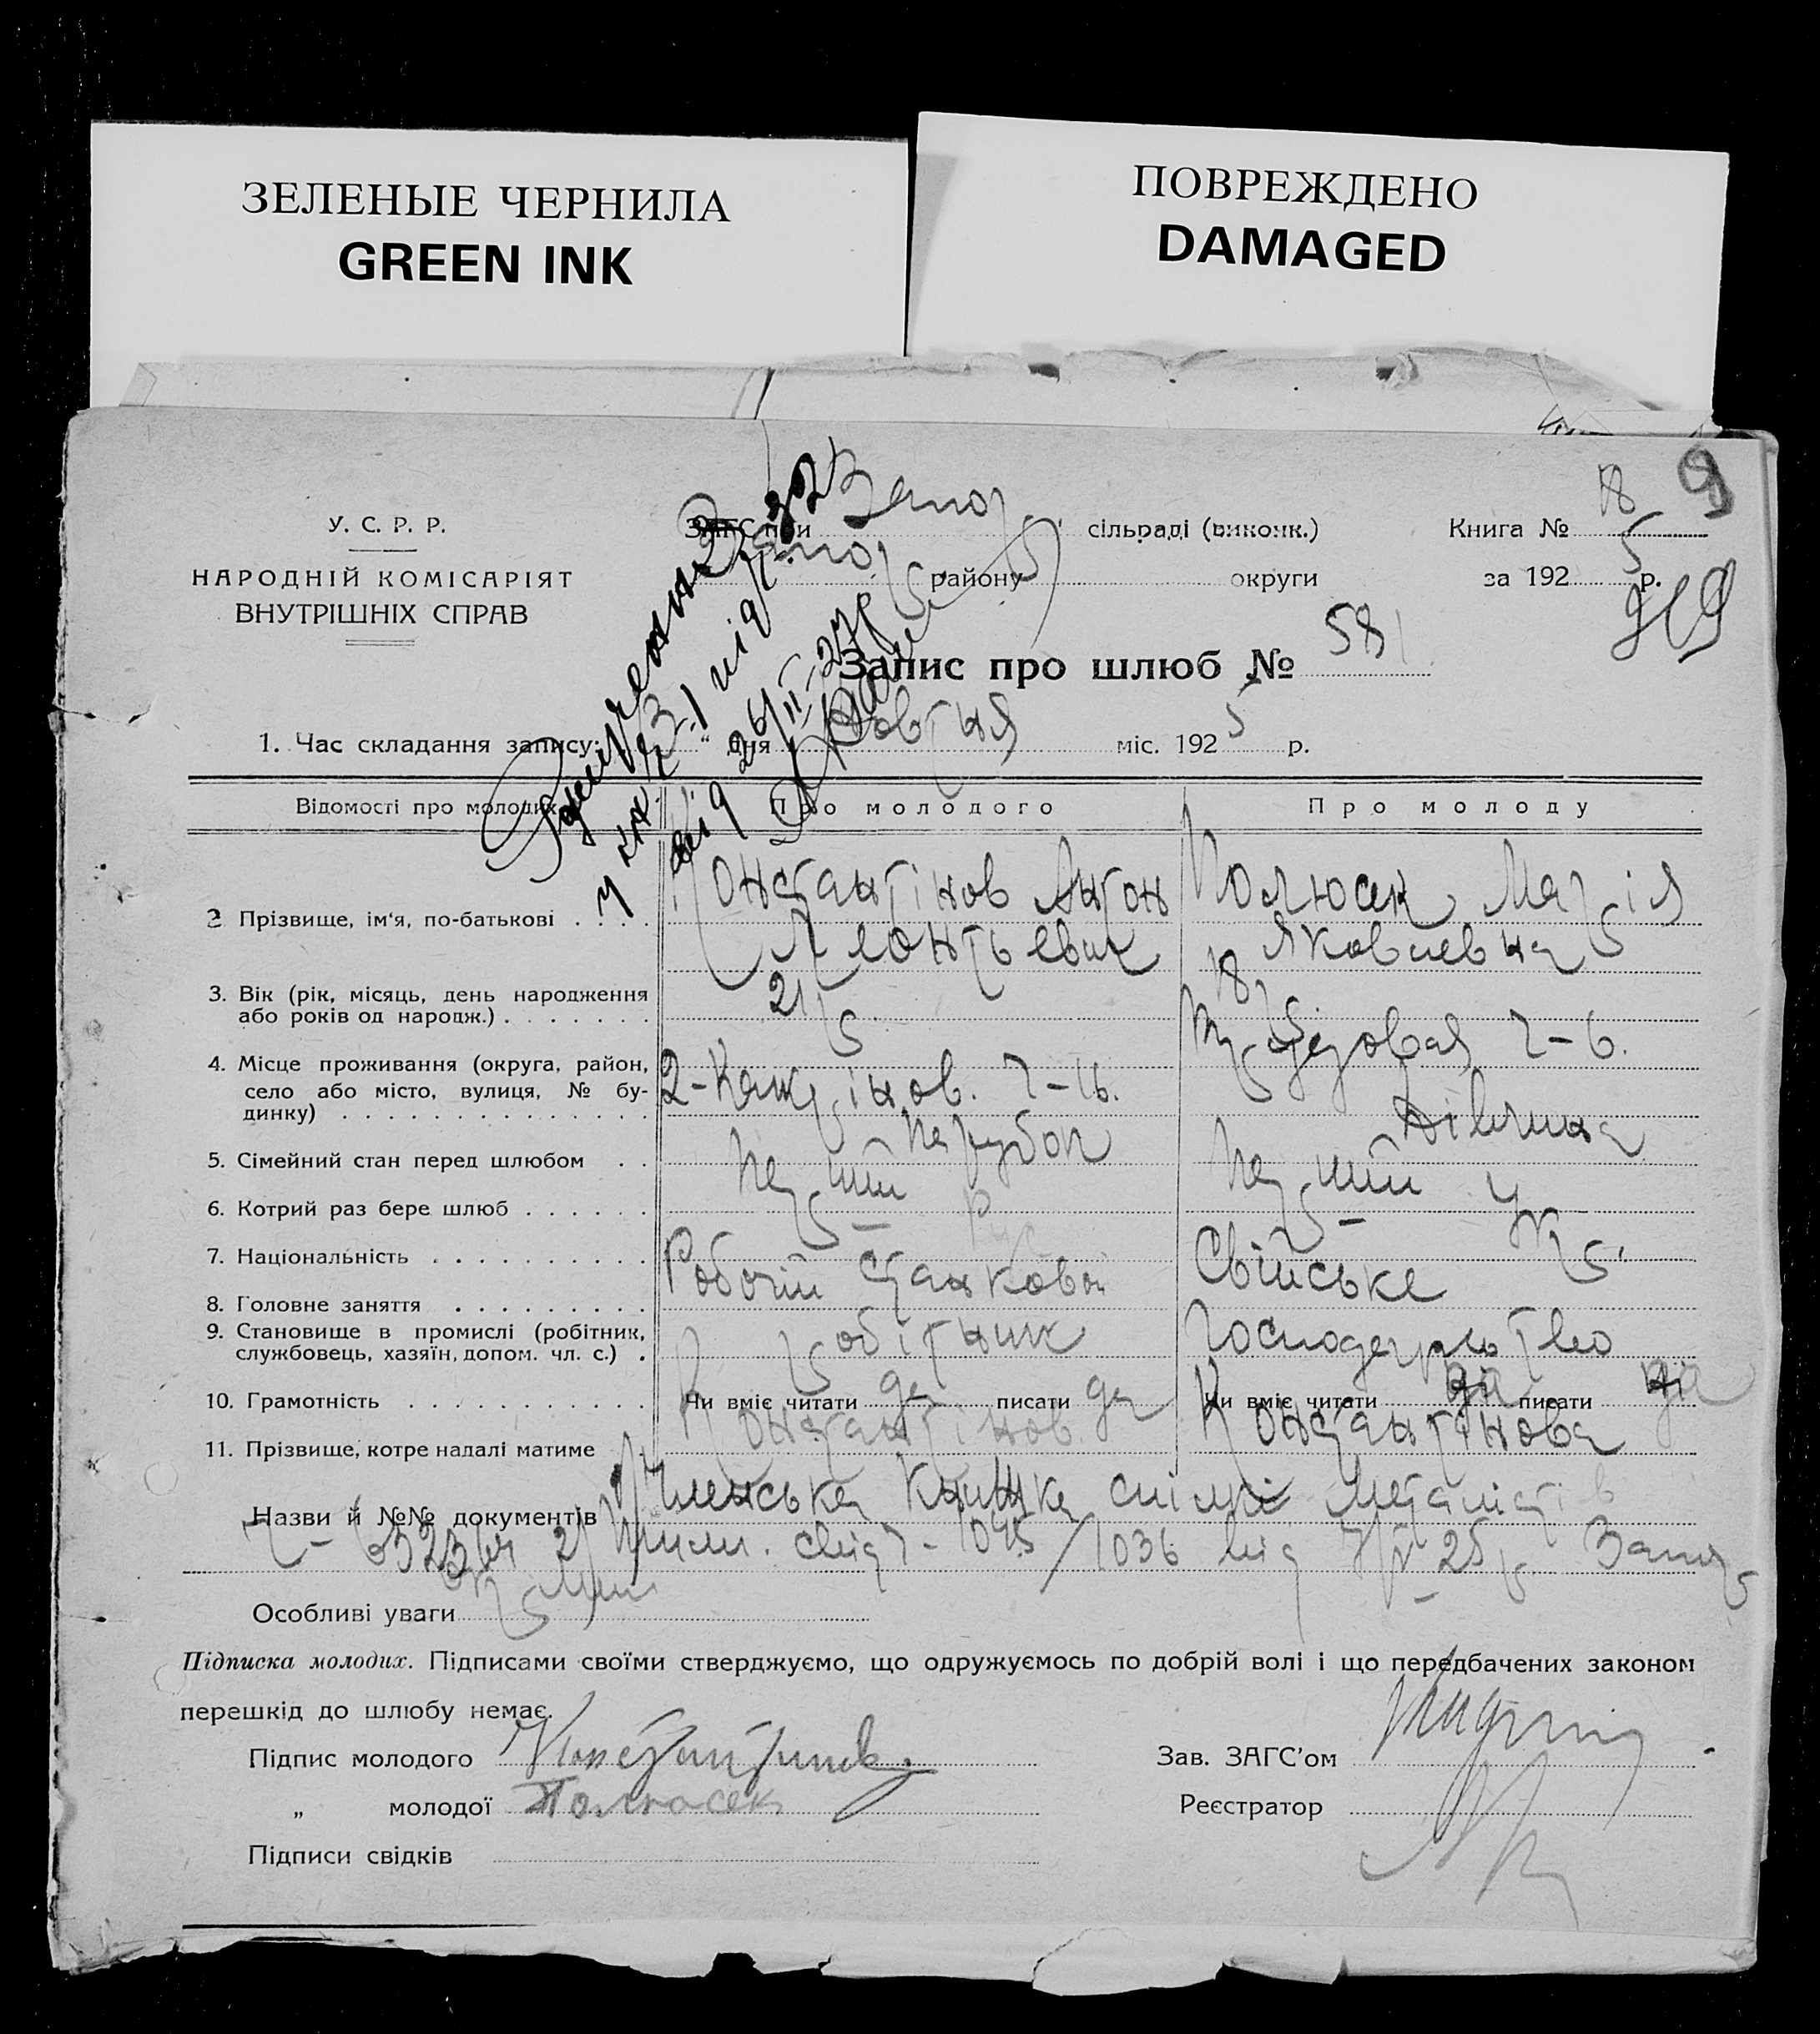 ЗЕЛЕНЫЕ ЧЕРНИЛА
GREEN INK
ПОВРЕЖДЕНО
DAMAGED
9
У. С. Р. Р.
НАРОДНІЙ КОМІСАРІЯТ
ВНУТРІШНІХ СПРАВ
ЗАГС при Запор сільраді (виконк.) Книга № 18
району округи за 192 5 р.
919
Запис про шлюб № 581
1. Час складання запису: " дня Жовтня міс. 192 5 р.
Відомості про молодих Про молодого Про молоду
2 Прізвище, ім'я, по-батькові . . . . Константінов Антон Полюсек Марія
Леонтьевич Яковлевна
3. Вік (рік, місяць, день народження 21 р 18 р
або років од народж.) . . . . . . .
4. Місце проживання (округа, район, 2-Кантінов. ч-16. ч-6.
село або місто, вулиця, № бу-
динку) . . . . . . . . . . . . . .
5. Сімейний стан перед шлюбом . . Парубок Дівчина
6. Котрий раз бере шлюб . . . . . . Перший Перший
7. Національність . . . . . . . . . . Рус Укр.
8. Головне заняття . . . . . . . . . Робочій станковий Свійське
9. Становище в промислі (робітник, робітник господарьство
службовець, хазяїн, допом. чл. с.) .
10. Грамотність . . . . . . . . . . . Чи вміє читати да писати да Чи вміє читати да писати да
11. Прізвище, котре надалі матиме Константінов Константінова
Назви й №№ документів Членська книжка спілкі металістів
свід ч-1045/1036 від 25 р. Запор
Особливі уваги
Підписка молодих. Підписами своїми стверджуємо, що одружуємось по добрій волі і що передбачених законом
перешкід до шлюбу немає.
Підпис молодого Константинов Зав. ЗАГС'ом
„ молодої Полюсек Реєстратор
Підписи свідків